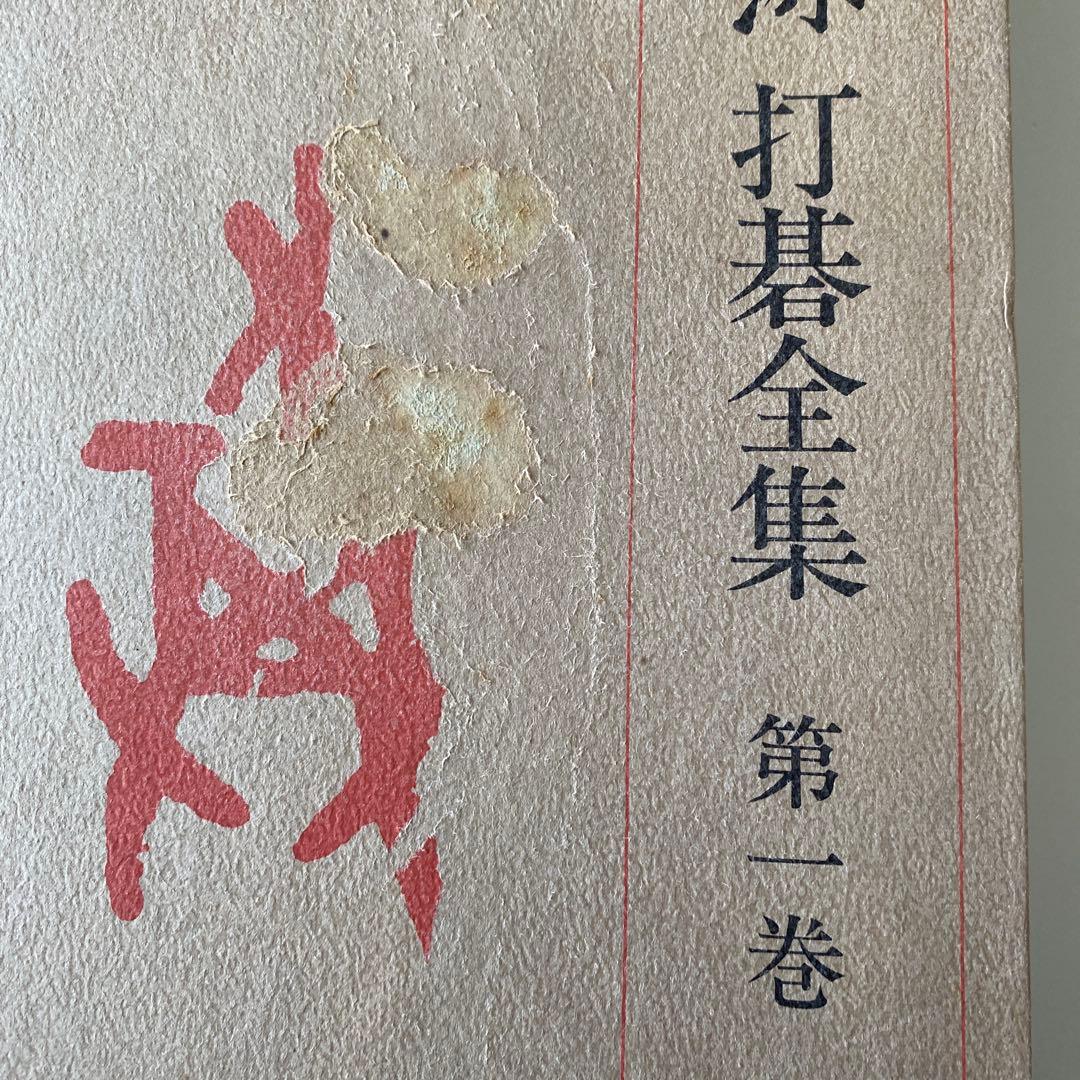 打碁全集 第一巻